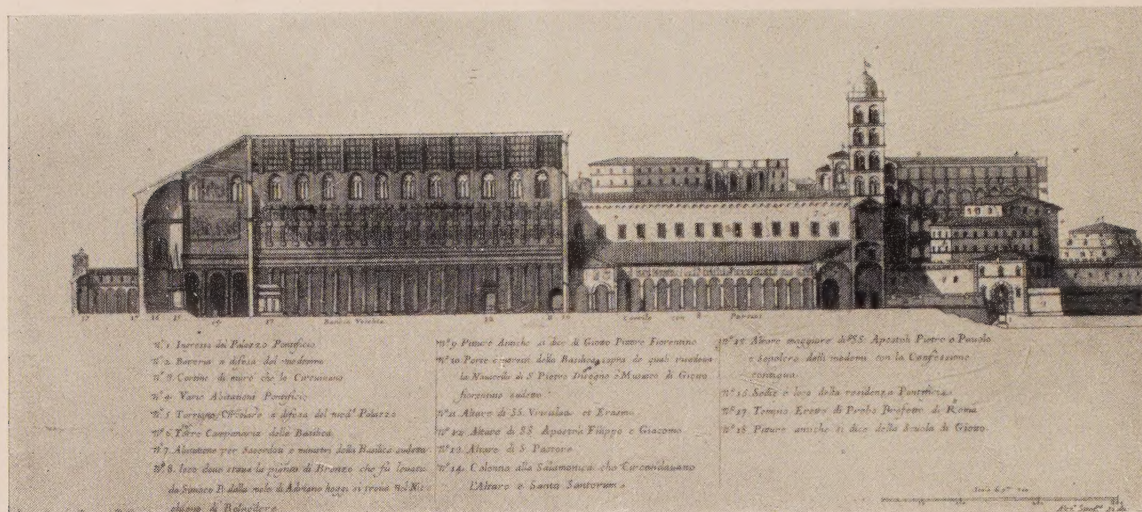 17
15
17
Basilica Vecchia
12
8
10
Cortile con
Portici
N.º 1. Ingresso del Palazzo Pontificio
N.º 2. Bateria a difesa del medemo
N.º 3. Cortine di muro che lo Circuivano
N.º 4. Varie Abitationi Pontificie
N.º 5. Torrione Circolare a difesa del med.º Palazzo
N.º 6. Torre Campanaria della Basilica
N.º 7. Abitatione per Sacerdoti e ministri della Basilica sudetta
N.º 8. loco dove stava la pianta di Bronzo che fù levata
da Simaco P. dalla mole di Adriano hoggi si trova nel Nic
chione di Belvedere
N.º 9. Pitture Antiche si dice di Giotto Pittore Fiorentino
N.º 10. Porte ingressi della Basilica sopra de quali risedeva
la Nauicella di S. Pietro Disegno e Musaico di Giotto
fiorentino sudetto
N.º 11. Altare di SS. Vinculae et Erasmo
N.º 12. Altare di SS. Apostoli Filippo e Giacomo
N.º 13. Altare di S. Pastore
N.º 14. Colonna alla Salamonica che Circondavano
L'Altare e Santa Santorum
N.º 15. Altare maggiore di SS. Apostoli Pietro e Pauolo
e Sepolcro delli medemi con la Confessione
contigua
N.º 16. Sedia e loco della residenza Pontificia
N.º 17. Tempio Eretto di Probo Prefetto di Roma
N.º 18. Pitture antiche si dice della Scuola di Giotto